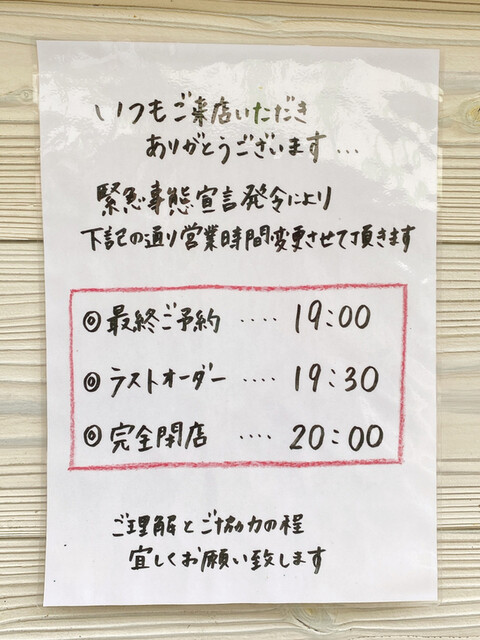 いつもご来店いただき
ありがとうございます...
緊急事態宣言発令により
下記の通り営業時間変更させて頂きます
◎最終ご予約 .... 19:00
◎ラストオーダー .... 19:30
◎完全閉店 .... 20:00
ご理解とご協力の程
宜しくお願い致します